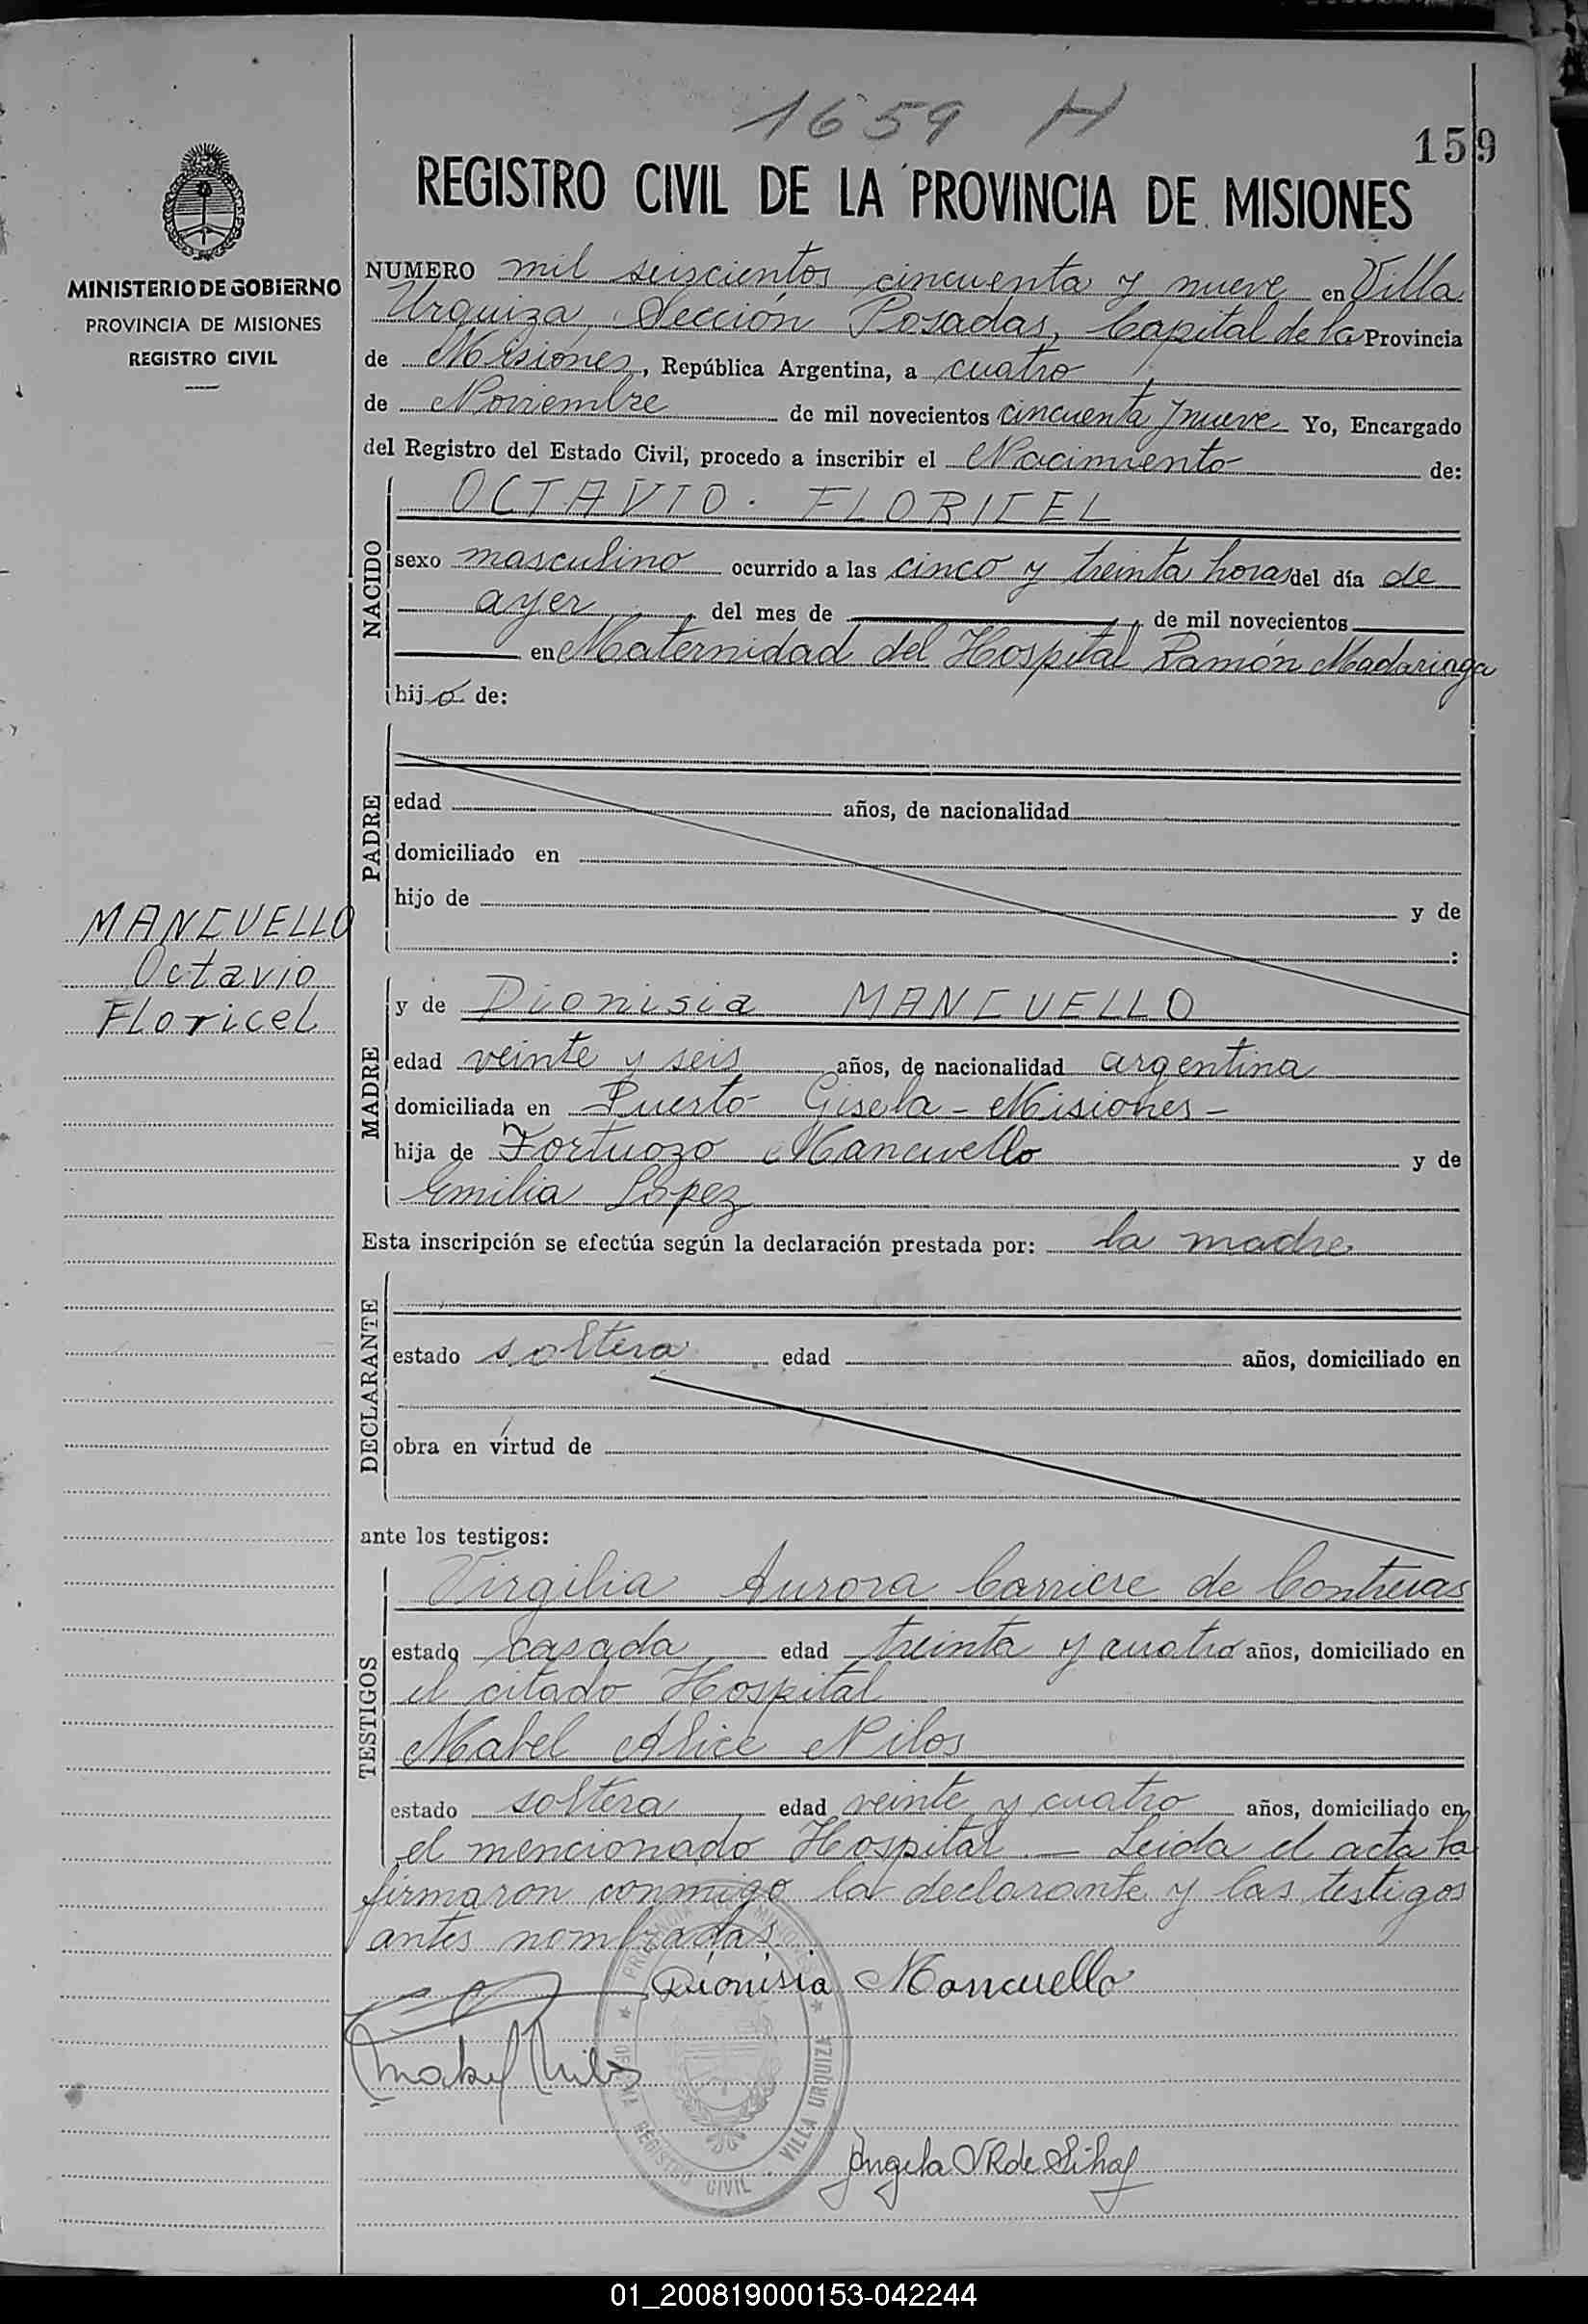 1659 H
159
REGISTRO CIVIL DE LA PROVINCIA DE MISIONES
MINISTERIO DE GOBIERNO
PROVINCIA DE MISIONES
REGISTRO CIVIL
NUMERO mil seiscientos cincuenta y nueve en Villa
Urquiza, Sección Posadas, Capital de la Provincia
de Misiones, República Argentina, a cuatro
de Noviembre de mil novecientos cincuenta y nueve Yo, Encargado
del Registro del Estado Civil, procedo a inscribir el Nacimiento de:
NACIDO
OCTAVIO FLORICEL
sexo masculino ocurrido a las cinco y treinta horas del día de
ayer del mes de de mil novecientos
en Maternidad del Hospital Ramón Madariaga
hijo de:
PADRE
edad años, de nacionalidad
domiciliado en
hijo de y de
:
MANCUELLO
Octavio
Floricel
MADRE
y de Dionisia MANCUELLO
edad veinte y seis años, de nacionalidad argentina
domiciliada en Puerto Gisela - Misiones -
hija de Fortuozo Mancuello y de
Emilia Lopez
Esta inscripción se efectúa según la declaración prestada por: la madre
DECLARANTE
estado soltera edad años, domiciliado en
obra en virtud de
ante los testigos:
TESTIGOS
Virgilia Aurora Carriere de Contreras
estado casada edad treinta y cuatro años, domiciliado en
el citado Hospital
Mabel Alice Nilos
estado soltera edad veinte y cuatro años, domiciliado en
el mencionado Hospital. — Leida el acta la
firmaron conmigo la declarante y las testigos
antes nombradas
Dionisia Mancuello
Mabel Nilos
REGISTRO CIVIL VILLA URQUIZA
Angela
01_200819000153-042244